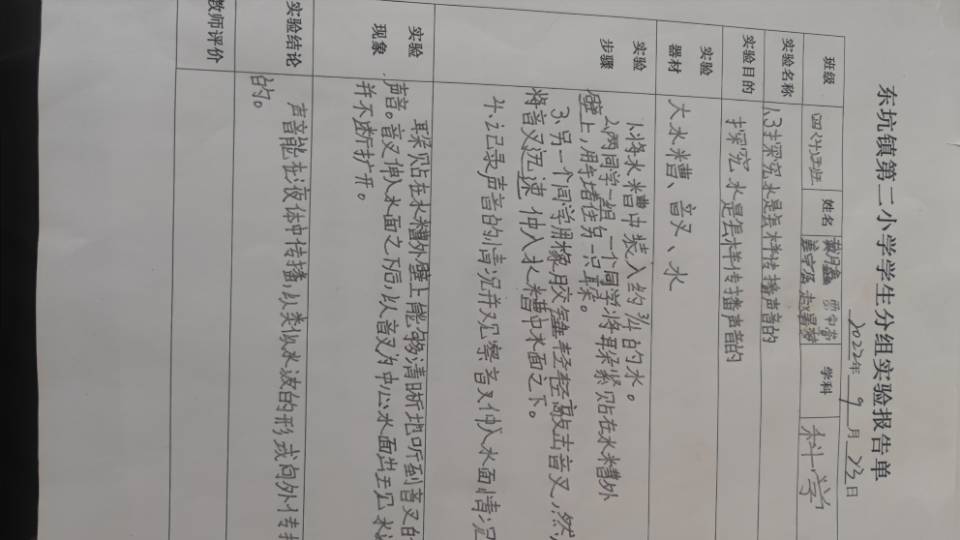 东坑镇第二小学学生分组实验报告单
2022年 9 月 23 日
班级 姓名 学科 科学
实验名称 1.3探究水是怎样传播声音的
实验目的 探究水是怎样传播声音的
实验器材 大水糟、音叉、水
实验步骤
1.将水糟中装入约3/4的水。
2.两同学一组,一个同学将耳朵紧贴在水糟外
壁上,用手堵住另一只耳朵。
3.另一个同学用橡胶锤轻轻敲击音叉,然
将音叉迅速伸入水糟中水面之下。
4.记录声音的情况并观察音叉伸入水面情况
实验现象
耳朵贴在水糟外壁上能够清晰地听到音叉的
声音。音叉伸入水面之下后,以音叉为中心水面出现水
并不断扩开。
实验结论
声音能在液体中传播,以类似水波的形式向外传
的。
教师评价